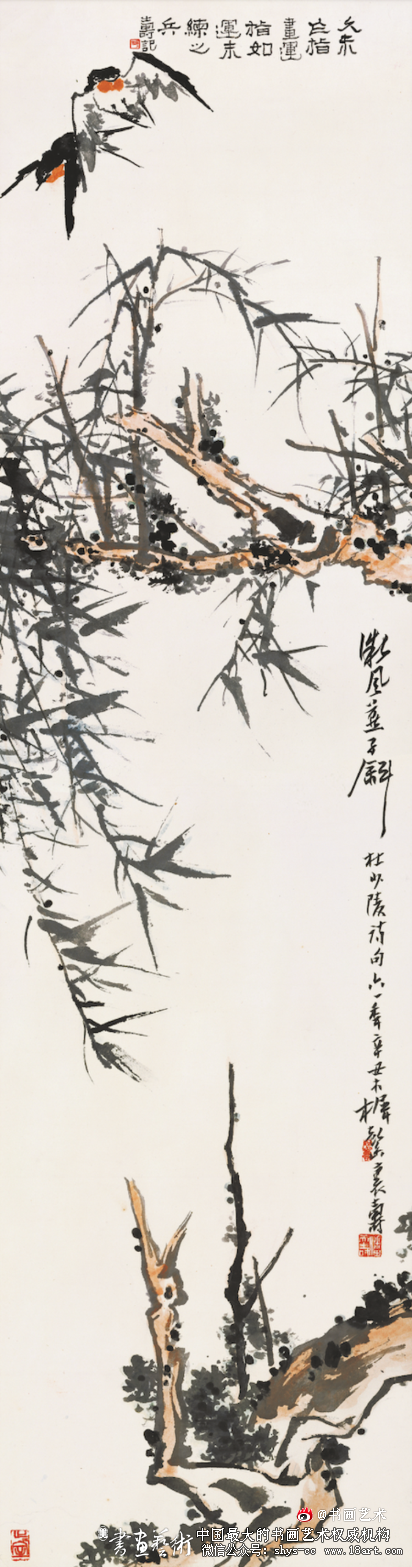 久未
作指
畫運
指如
運未
練之
兵
壽記
微風燕子斜
杜少陵詩句六一年辛丑木樨
發之裏壽
書畫藝術
@书画艺术
中国最大的书画艺术权威机构
微信公众号：shys-cc www.18art.com